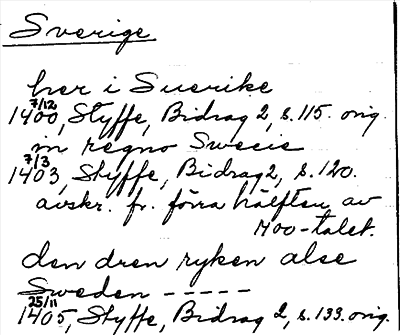 Sverige
her i Suerike
7/12
1400, Styffe, Bidrag 2, s. 115. orig.
in regno Swecie
7/3
1403, Styffe, Bidrag 2, s. 120.
avskr. fr. förra hälften av
1400-talet.
den dren ryken alse
Sweden -----
25/11
1405, Styffe, Bidrag 2, s. 133. orig.